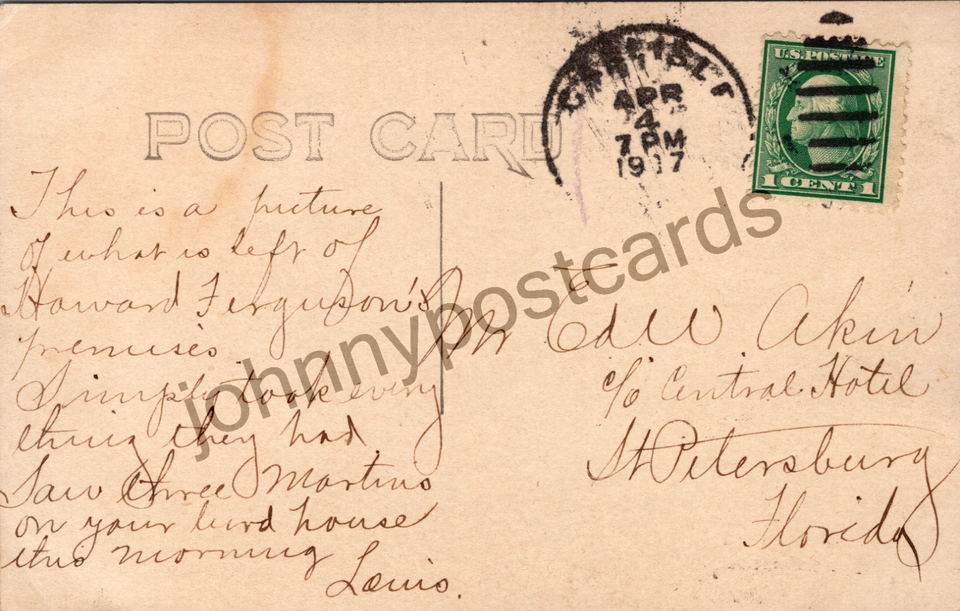 POST CARD
APR
4
7 PM
1917
U.S. POSTAGE
1 CENT 1
This is a picture
of what is left of
Howard Ferguson's
premises
Simply took every
thing they had
Saw three Martins
on your bird house
this morning
Louis.
Mr Ed W Akin
c/o Central Hotel
St Petersburg
Florida
johnnypostcards